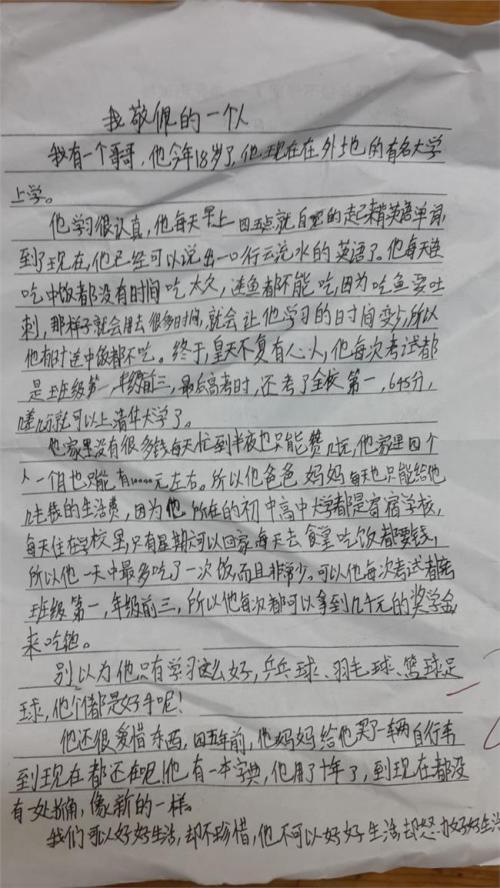 我敬佩的一个人
我有一个哥哥，他今年18岁了，他现在在外土也的有名大学
上学。
他学习很认真，他每天早上四五点就自觉的起来背英语单词，
到了现在，他已经可以说出一口行云流水的英语了。他每天连
吃中饭都没有时间吃太久，连鱼都不能吃，因为吃鱼要吐
刺，那样子就会用去很多时间，就会让他学习的时间变少，所以
他有时连中饭都不吃。终于，皇天不复有心人，他每次考试都
是班级第一，年级前三，最后高考时，还考了全校第一，645分，
差几分就可以上清华大学了。
他家里没有很多钱每天忙到半夜也只能赞几元，他家里四个
人一个月也只能有10000元左右。所以他爸爸妈妈每天也只能给他
几十钱的生活费，因为他所在的初中高中大学都是寄宿学校，
每天住在学校里，只有星期天可以回家，每天去食堂吃饭都要钱，
所以他一天中最多吃了一次饭，而且非常少。可以他每次考试都考
班级第一，年级前三，所以他每次都可以拿到几千元的奖学金
来吃饱。
别以为他只有学习这么好，乒乓球、羽毛球、篮球足
球，他个个都是好手呢！
他还很爱惜东西，四五年前，他妈妈给他买了一辆自行车
到现在都还在呢！他有一本字典，他用了十年了，到现在都没
有一处折角，像新的一样。
我们可以好好生活，却不珍惜，他不可以好好生活却想办好好生活